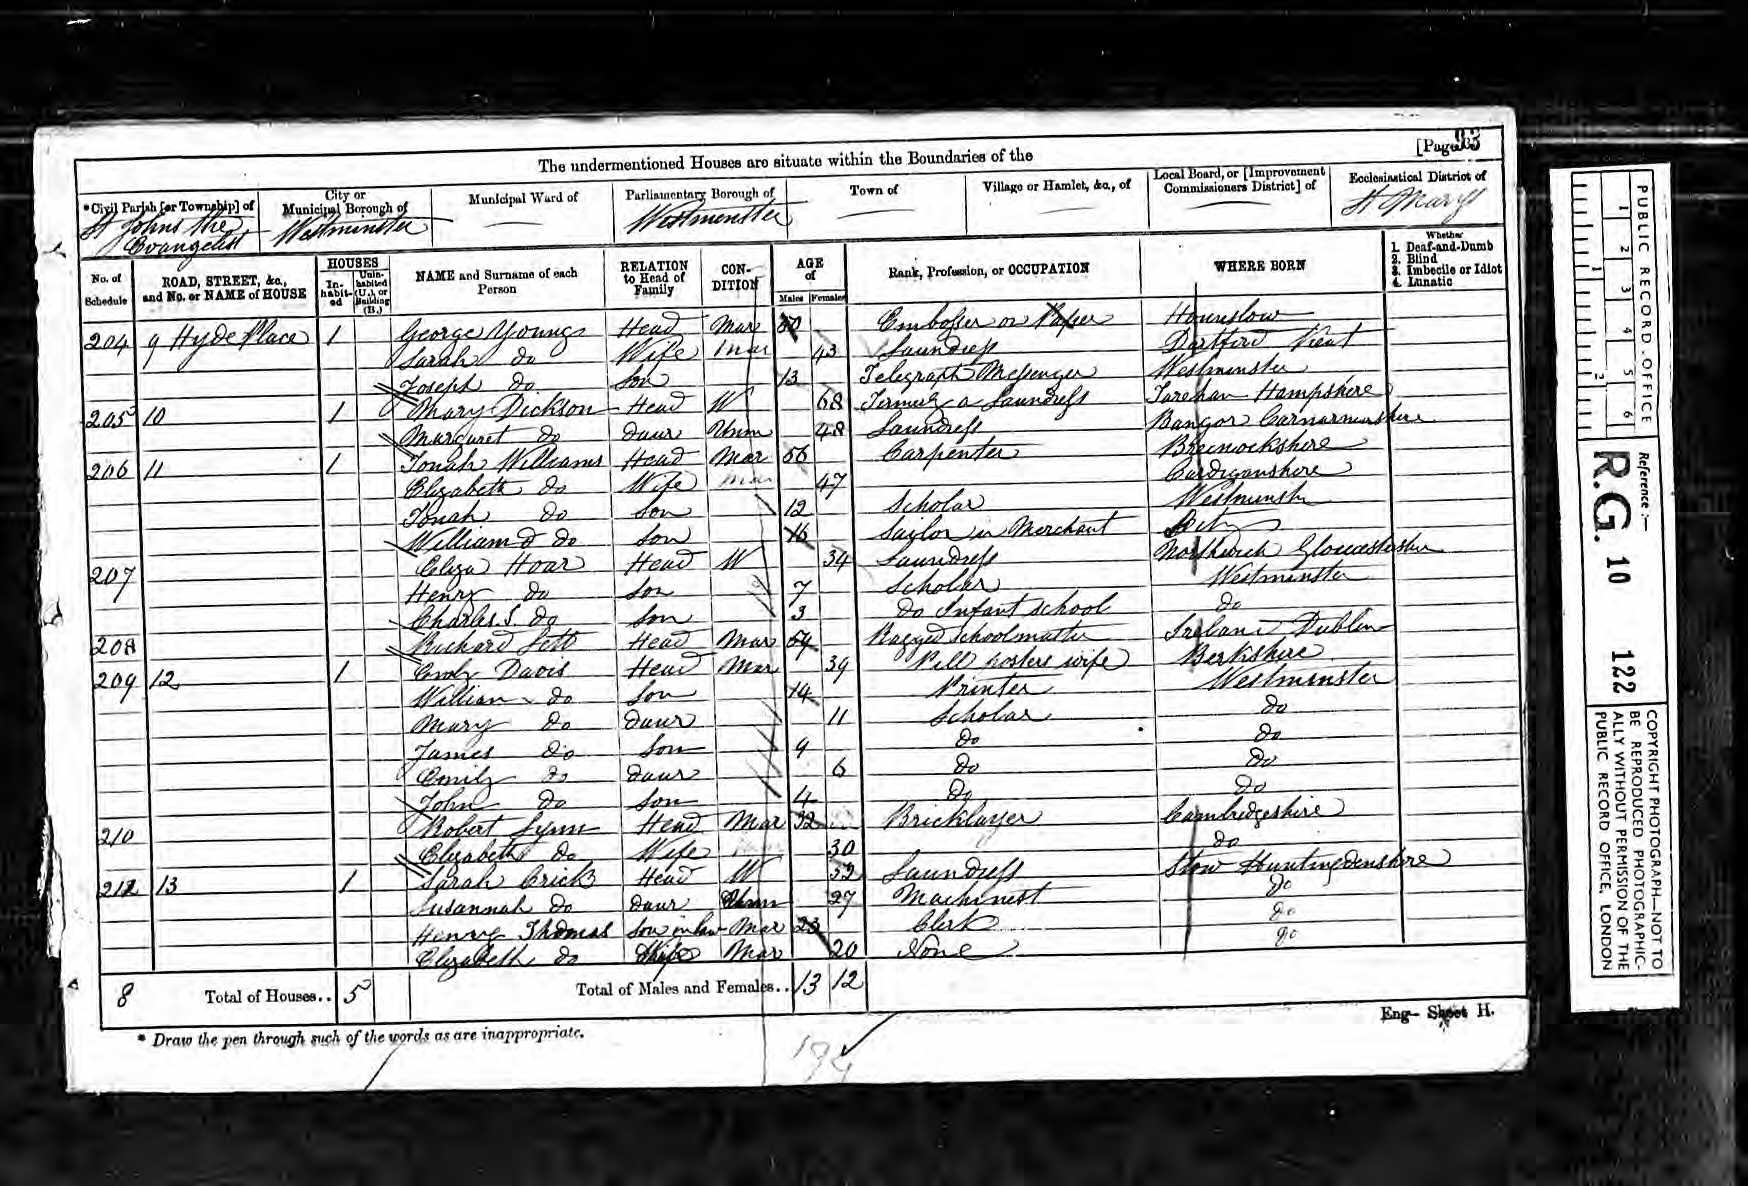 [Page 93
The undermentioned Houses are situate within the Boundaries of the
*Civil Parish [or Township] of
St Johns the Evangelist
City or Municipal Borough of
Westminster
Municipal Ward of
Parliamentary Borough of
Westminster
Town of
Village or Hamlet, &c., of
Local Board, or [Improvement Commissioners District] of
Ecclesiastical District of
St Marys
No. of Schedule
ROAD, STREET, &c., and No. or NAME of HOUSE
HOUSES
In-habit-ed
Unin-habited (U.), or Building (B.)
NAME and Surname of each Person
RELATION to Head of Family
CON-DITION
AGE of
Males Females
Rank, Profession, or OCCUPATION
WHERE BORN
Whether
1. Deaf-and-Dumb
2. Blind
3. Imbecile or Idiot
4. Lunatic
204 9 Hyde Place 1 George Young Head Mar 50 Embosser on Paper Hounslow
Sarah do Wife Mar 43 Laundress Dartford Kent
Joseph do Son 13 Telegraph Messenger Westminster
205 10 1 Mary Dickson Head W 68 Formerly a Laundress Fareham Hampshire
Margaret do Daur Unm 48 Laundress Bangor Carnarvonshire
206 11 1 Jonah Williams Head Mar 56 Carpenter Brecnockshire
Elizabeth do Wife Mar 47 Cardiganshire
Jonah do Son 12 Scholar Westminster
William do Son 16 Sailor in Merchant
207 Eliza Hoar Head W 34 Laundress Gloucestershire
Henry do Son 7 Scholar Westminster
Charles S. do Son 3 do Infant School do
208 Richard Head Mar Ragged Schoolmaster Ireland Dublin
209 12 1 Emily Davis Head Mar 39 Bill posters wife Berkshire
William do Son 14 Printer Westminster
Mary do Daur 11 Scholar do
James do Son 9 do do
Emily do Daur 6 do do
John do Son 4 do do
210 Robert Lynn Head Mar 32 Bricklayer Cambridgeshire
Elizabeth do Wife 30 do
212 13 1 Sarah Crick Head W Laundress Stow Huntingdonshire
Susannah do Daur Unm 27 Machinest do
Henry Thomas Son in law Mar 23 Clerk do
Elizabeth do Wife Mar 20 None do
8 Total of Houses.. 5 Total of Males and Females.. 13 12
* Draw the pen through such of the words as are inappropriate.
Eng— Sheet H.
PUBLIC RECORD OFFICE
1 2 3 4 5 6
1 2
Reference :—
R.G. 10 122
COPYRIGHT PHOTOGRAPH—NOT TO
BE REPRODUCED PHOTOGRAPHIC-
ALLY WITHOUT PERMISSION OF THE
PUBLIC RECORD OFFICE, LONDON